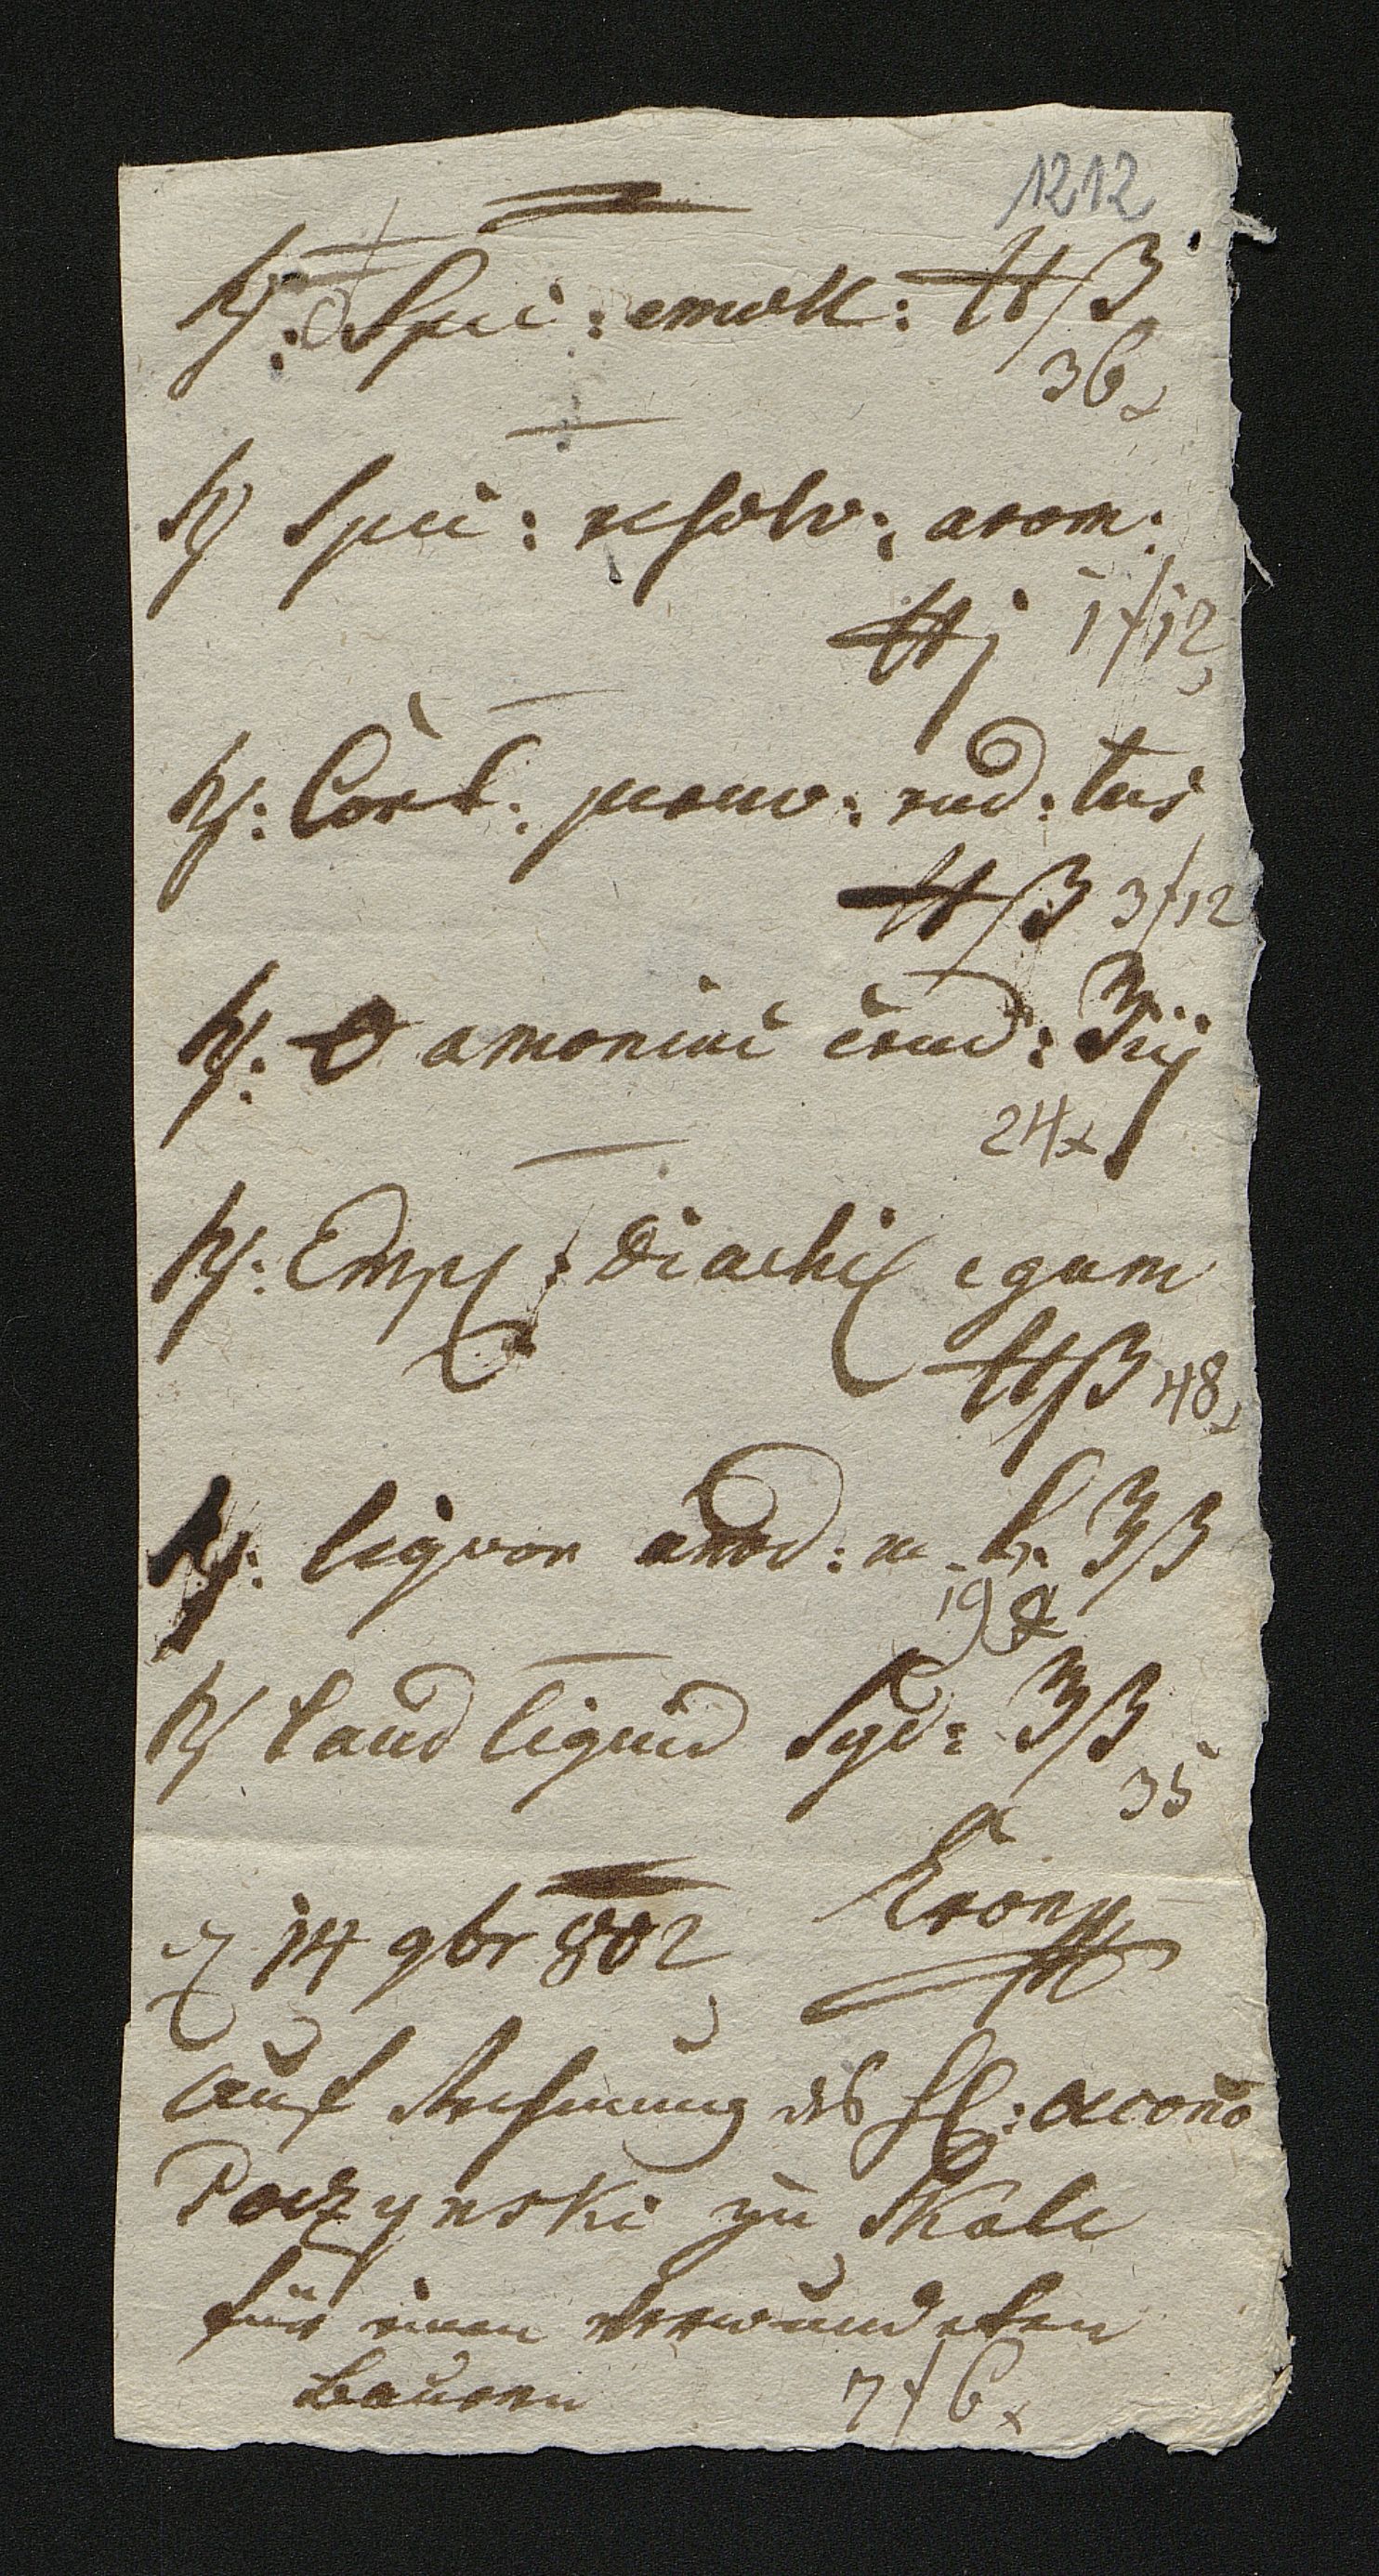 1212
℞: Spec: emoll: ℔ß
36x
℞ Spec: resolv: arom:
℔j 1f12
℞: Cort. peruv: rud: tus
℔ß 3f12
℞: amoniaci crud: ℥iij
24x
℞: Empl: Diachil c gum
℔ß 48x
℞: liquor anod: m. h. ℥ß
19x
℞ Laud liquid Syd: ʒß
35
14 9br 802
auf Rechnung des H: oecono
Poczynski zu Skale
für einen verwundeten
Bauern 7f6x